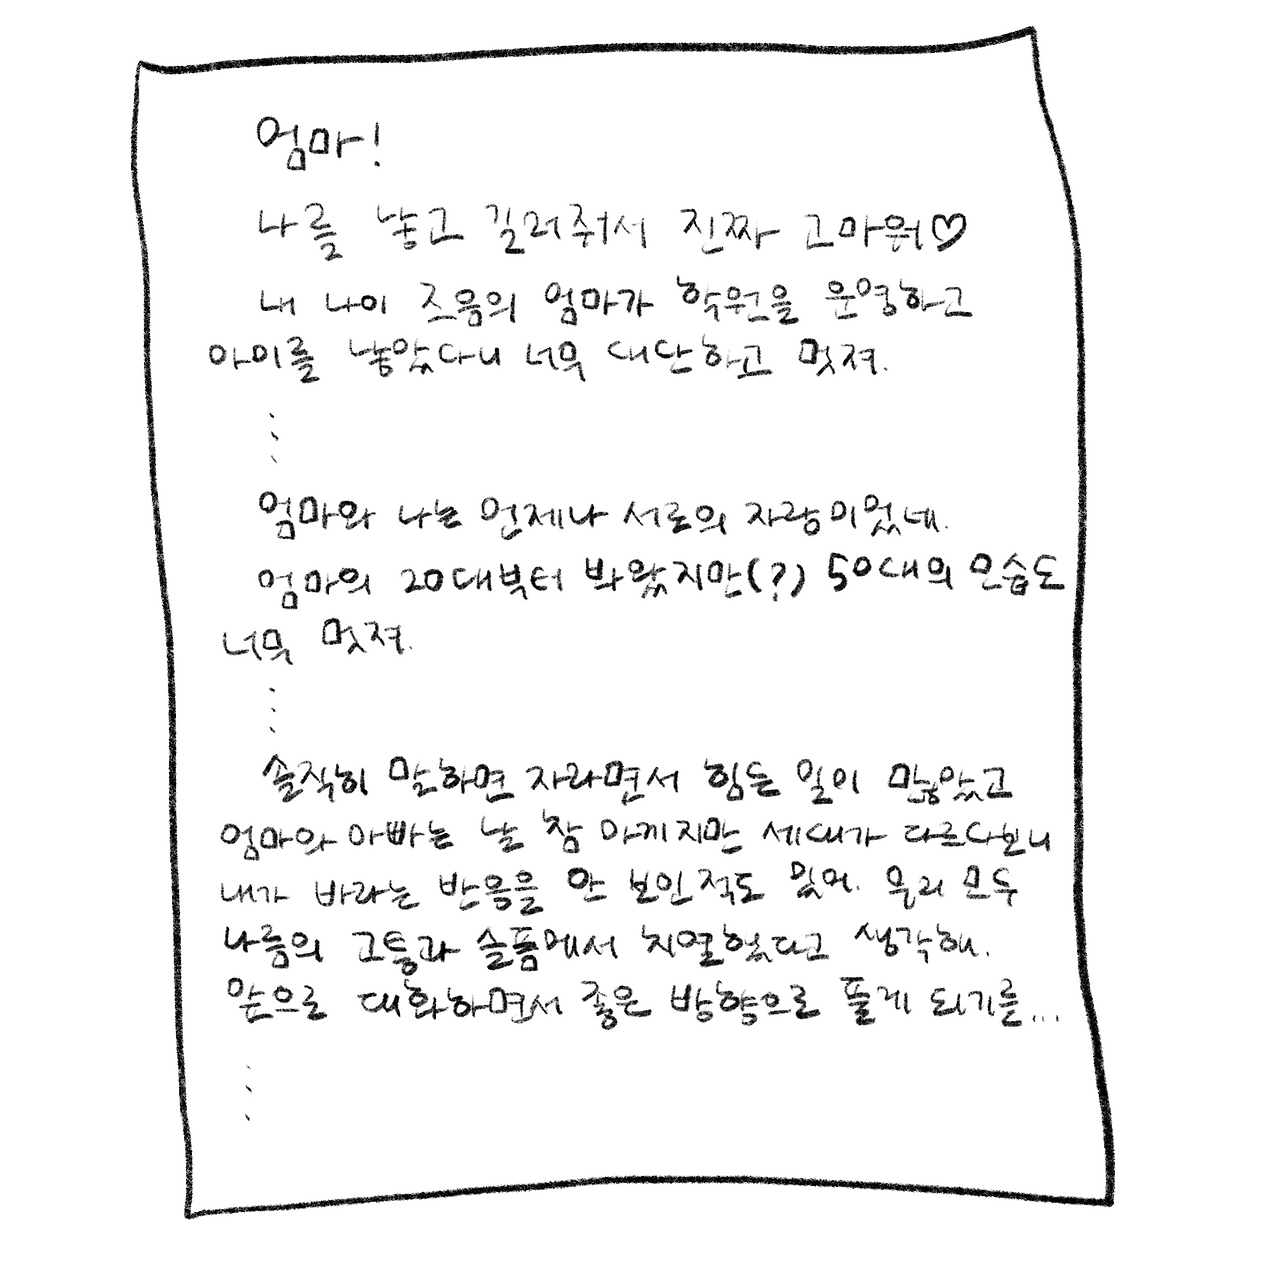 엄마!
나를 낳고 길러줘서 진짜 고마워♡
내 나이 즈음의 엄마가 학원을 운영하고
아이를 낳았다니 너무 대단하고 멋져.
⋮
엄마와 나는 언제나 서로의 자랑이었네.
엄마의 20대부터 봐왔지만(?) 50대의 모습도
너무 멋져.
⋮
솔직히 말하면 자라면서 힘든 일이 많았고
엄마와 아빠는 날 참 아끼지만 세대가 다르다보니
내가 바라는 반응을 안 보인적도 있어. 우리 모두
나름의 고통과 슬픔에서 치열했다고 생각해.
앞으로 대화하면서 좋은 방향으로 풀게 되기를...
⋮